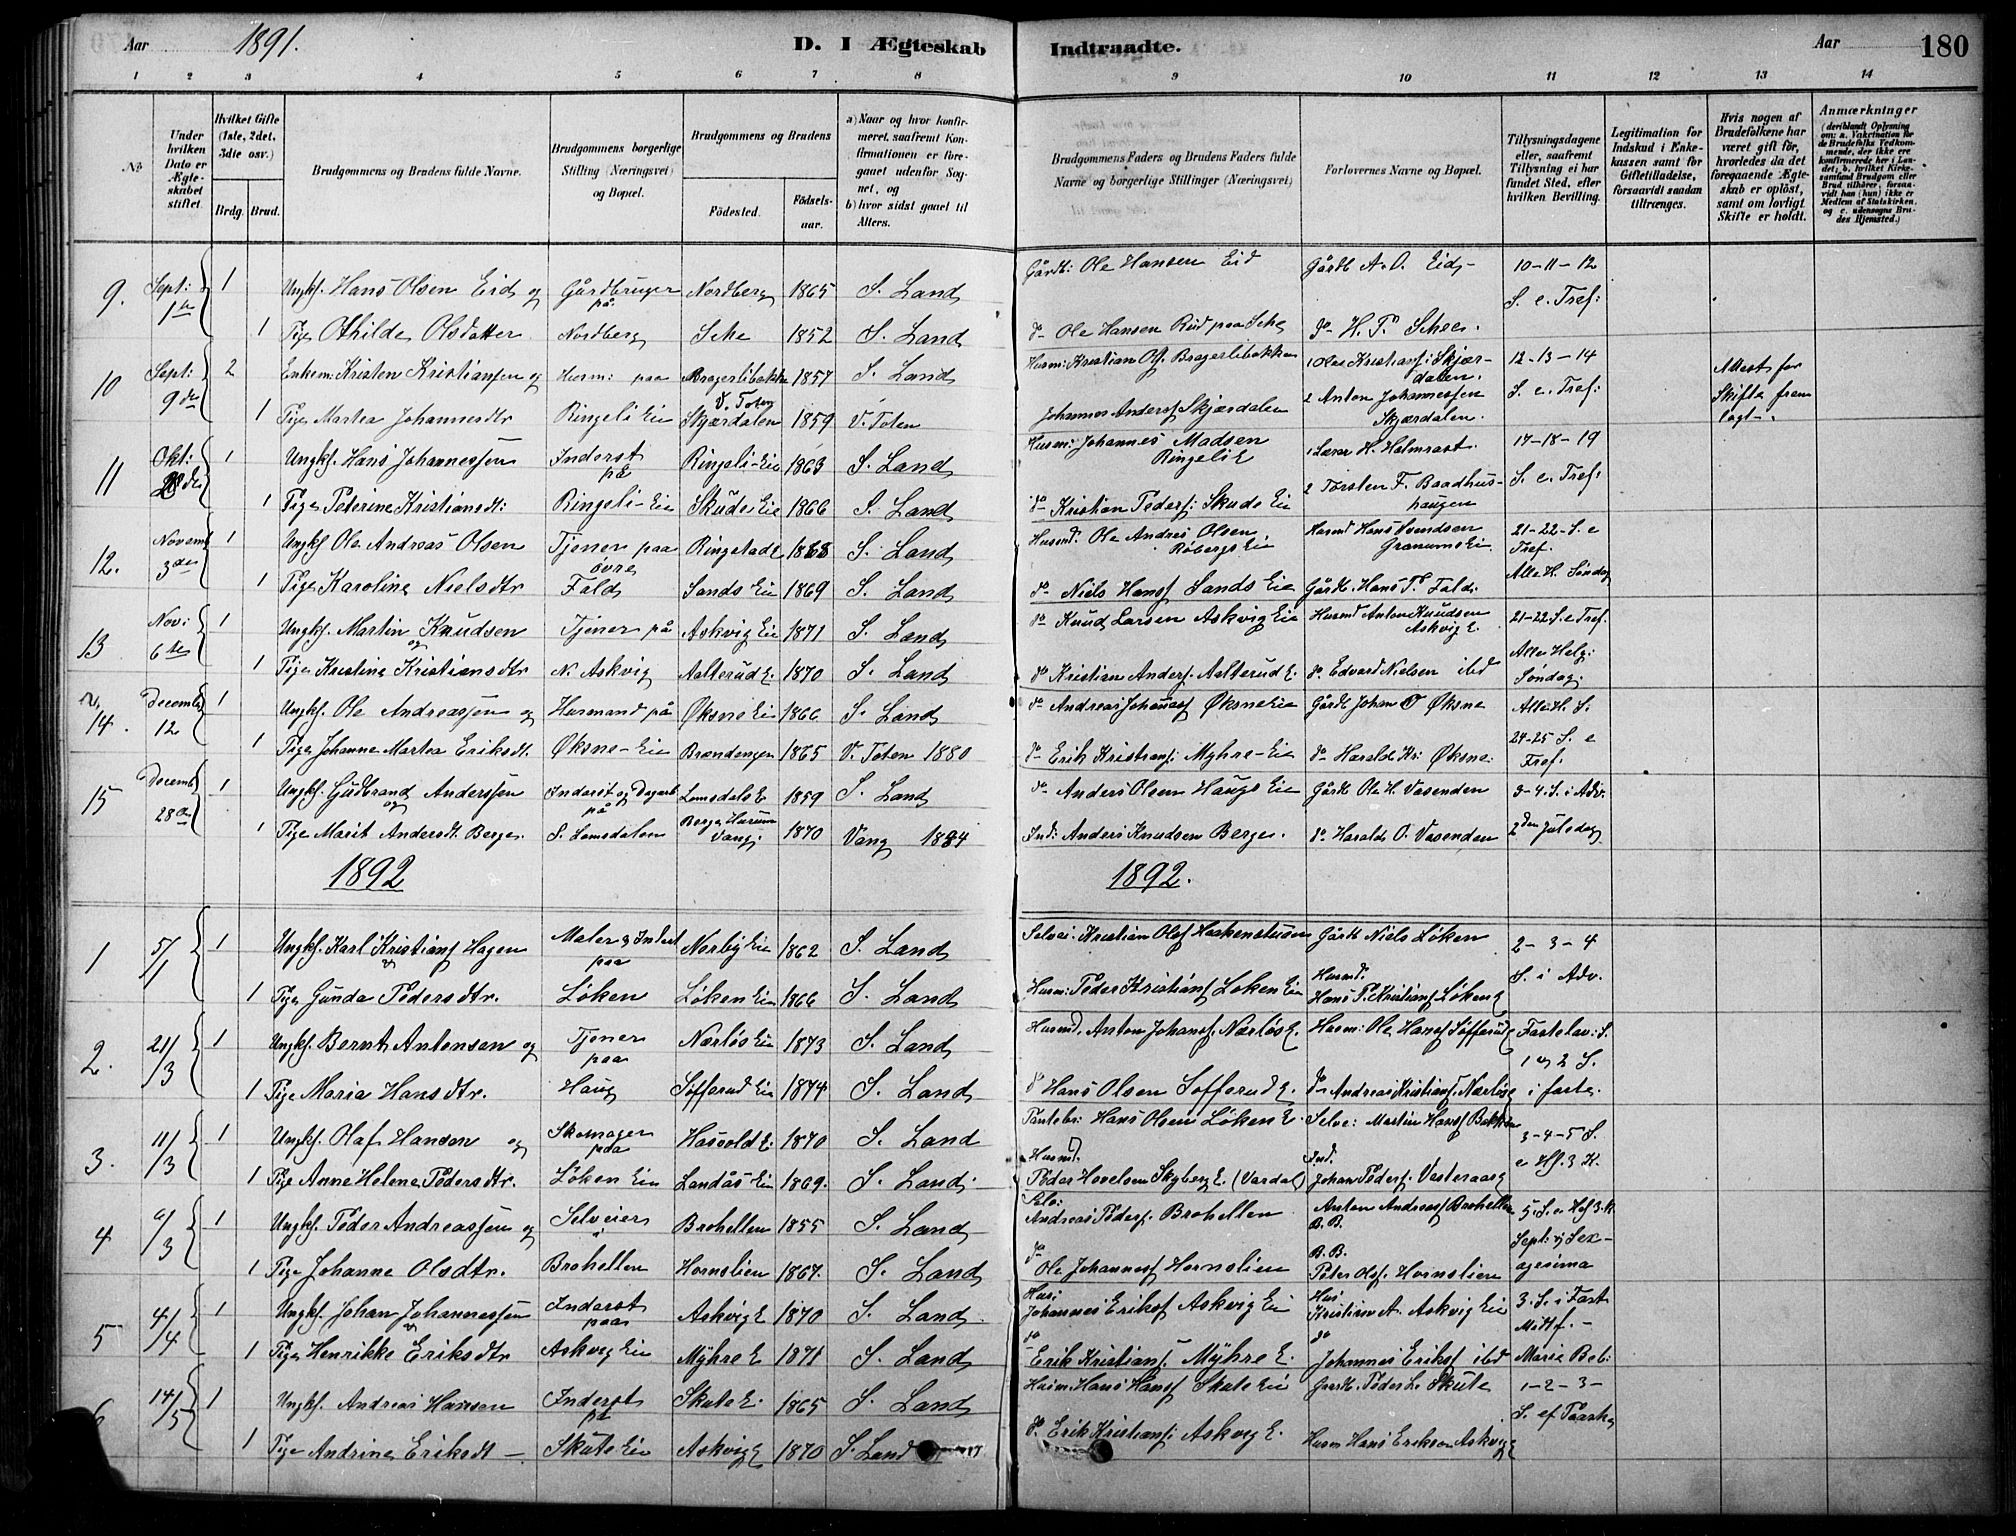 Aar 1891. D. I Ægteskab Indtraadte. Aar 180
1 2 3 4 5 6 7 8 9 10 11 12 13 14
No.
Under hvilken Dato er Ægteskabet stiftet.
Hvilket Gifte (1ste, 2det, 3die osv.)
Brdg. Brud.
Brudgommens og Brudens fulde Navne.
Brudgommens borgerlige Stilling (Næringsvei) og Bopæl.
Brudgommens og Brudens
Födested.
Födselsaar.
a) Naar og hvor konfirmeret, saafremt Konfirmationen er foregaaet udenfor Sognet, og
b) hvor sidst gaaet til Alters.
Brudgommens Faders og Brudens Faders fulde Navne og borgerlige Stillinger (Næringsvei)
Forlovernes Navne og Bopæl.
Tillysningsdagene eller, saafremt Tillysning ei har fundet Sted, efter hvilken Bevilling.
Legitimation for Indskud i Enkekassen samt for Giftetilladelse, forsaavidt saadan tiltrænges.
Hvis nogen af Brudefolkene har været gift för, hvorledes da det foregaaende Ægteskab er oplöst, samt om lovligt Skifte er holdt.
Anmærkninger
(deriblandt Oplysning om: a. Vakcination for de Brudefolks Vedkommende, der ikke ere konfirmerede her i Landet; b. hvilket Kirkesamfund Brudgom eller Brud tilhörer, forsaavidt han (hun) ikke er Medlem af Statskirken, og c. udensogns Brudes Hjemsted.)
9. Sept: 1ste 1 Ungkf. Hans Olsen Eid og Gårdbruger på Nordberg 1865 S. Land Gårdb: Ole Hansen Eid Gårdb A. O. Eid 10-11-12
1 Pige Othilde Olsdatter Nordberg 1852 S. Land do Ole Hansen Rud paa do H. P. S. e. Tref:
10 Sept: 9de 2 Enkem: Kristen Kristiansen og Husm: paa Bragerlibakke 1857 S. Land Husm: Kristian Olsf Bragerlibakken 1 Ole Kristiansf: Skjærdalen. 12-13-14 Attest for
1 Pige Martea Johannesdtr Ringeli Eie Skjærdalen V. Toten 1859 V. Toten Johannes Andersf Skjærdalen 2 Anton Johannessen Skjærdalen. S. e. Tref: Skifte fremlagt.
11 Okt: 1 Ungkf. Hans Johannessen Inderst på Ringeli-Eie 1863 S. Land Husm: Johannes Madsen Ringeli E 1 Lærer H. Holmrast. 17-18-19
1 Pige Pederine Kristiansdt: Ringeli-Eie Skude Eie 1866 S. Land do Kristian Pedersf: Skude Eie 2 Torsten F. Baadhushaugen S. e. Tref:
12. Novemb 3die 1 Ungkf Ole Andreas Olsen Tjener paa Ringstad E 1868 S. Land Husmd. Ole Andreas Olsen Røbergs Eie Husmd Hans Svendsen Granums Eie 21-22-S. e Tref.
1 Pige Karoline Nielsdtr övre Fald Sands Eie 1869 S. Land do Niels Hansf Sands Eie Gårdb. Hans P. Fald. Alle H. Søndag
13 Nov: 6te 1 Ungkf. Martin Knudsen og Tjener på Askvig Eie 1871 S. Land do Knud Larsen Askvig Eie Husmd Anton Knudsen Askvig E. 21-22 S. e Tref.
1 Pige Kristine Kristiansdtr N. Askvig Aalterud E. 1870 S. Land do Kristian Andersf. Aalterud E. do Edvard Nielsen ibd Alle Helg: Søndag.
14. Decemb 12 1 Ungkf. Ole Andreassen og Husmand på Øksne Eie 1866 S. Land do Andreas Johannesf Øksne Eie Gårdb Johan O Øksne Alle H. S.
1 Pige Johanne Martea Eriksdt. Øksne-Eie Brændengen 1865 V. Toten 1880 do Erik Kristiansf: Myhre-Eie do Harald Kr: Øksne. 24-25 S. e Tref.
15 Decemb 28de 1 Ungkf. Gudbrand Andersen og Inderst og Dagarb på Lomsdals E 1859 S. Land do Anders Olsen Haugs Eie Gårdb Ole H. Vasenden 3-4. S. i Adv.
1 Pige Marit Andersdt. Berge. S. Lomsdalen Berge Hurum Vang. 1870 Vang 1884 Ind: Anders Knudsen Berge. do Harald O. Vasenden 2den Juledag
1892 1892.
1 5/1 1 Ungkf. Karl Kristiansf Hagen Maler og Inderst paa Norby Eie 1862 S. Land Selvei. Kristian Olsf Haakenstuen Gårdb Niels Løken 2-3-4
1 Pige Gunda Pedersdtr. Løken Løken Eie 1866 S. Land Husm: Peder Kristiansf Løken Eie Husmd. Hans P. Kristiansf Løken E S. i Adv.
2. 21/3 1 Ungkf. Bernt Antonsen og Tjener paa Nærløs Eie 1873 S. Land Husmd. Anton Johansf. Nærløs E. Husm: Ole Hansf Sofferud E Fastelav: S.
1 Pige Maria Hansdtr. Haug Sofferud Eie 1874 S. Land do Hans Olsen Sofferud E. do Andreas Kristiansf. Nærløs E 1 og 2 S. i faste.
3. 11/3 1 Ungkf. Olaf Hansen og Skomager paa Hasvold E. 1870 S. Land Hans Olsen Løken E Selve: Martin Hansf Bakken 3-4-5 S.
1 Pige Anne Helene Pedersdtr. Løken Eie Landås Eie 1869. S. Land Husmd. Peder Hovelsen Skyberg E. (Vardal) Ind. Johan Pedersf. Vesteraas E e Hf. 3 K.
4 /3 1 Ungkf. Peder Andreassen og Selveier Brohellen 1855 S. Land Selv: Andreas Pedersf. Brohellen Anton Andreasf Brohellen B. B. 5. S. e Hf 3. K
1 Pige Johanne Olsdtr. Brohellen Hornslien 1867. S. Land do Ole Johannesf Hornslien B. B. Peter Olsf. Hornslien Sept: og Sexagesima
5 4/4 1 Ungkf. Johan Johannessen og Inderst paa Askvig E 1870 S. Land Hus: Johannes Eriksf Askvig Eie Hus: Kristian A. Askvig Eie 3. S. i Fast
1 Pige Henrikke Eriksdtr Askvig Eie Myhre E 1871 S. Land do Erik Kristiansf. Myhre E. do Johannes Eriksf ibd Midtf. - Maria Beb:
6 14/5 1 Ungkf. Andreas Hansen Inderst på Skute E. 1865 S. Land Husm. Hans Hansf Skute Eie Gaardb. Peder L. Skute 1-2-3-
1 Pige Andrine Eriksdt - Skute Eie Askvig E 1870 S. Land do Erik Kristiansf: Askvig E. Husm Hans Eriksen Askvig E S. ef Paaske